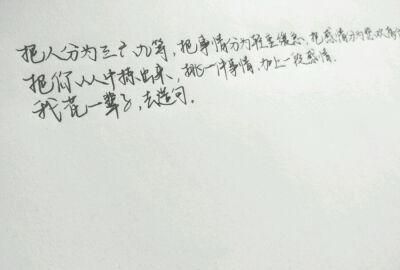 把人分为三六九等，把事情分为轻重缓急，把感情分为喜欢
把你从人中摘出来，挑一件事情，加上一段感情。
我花一辈子，去造句。